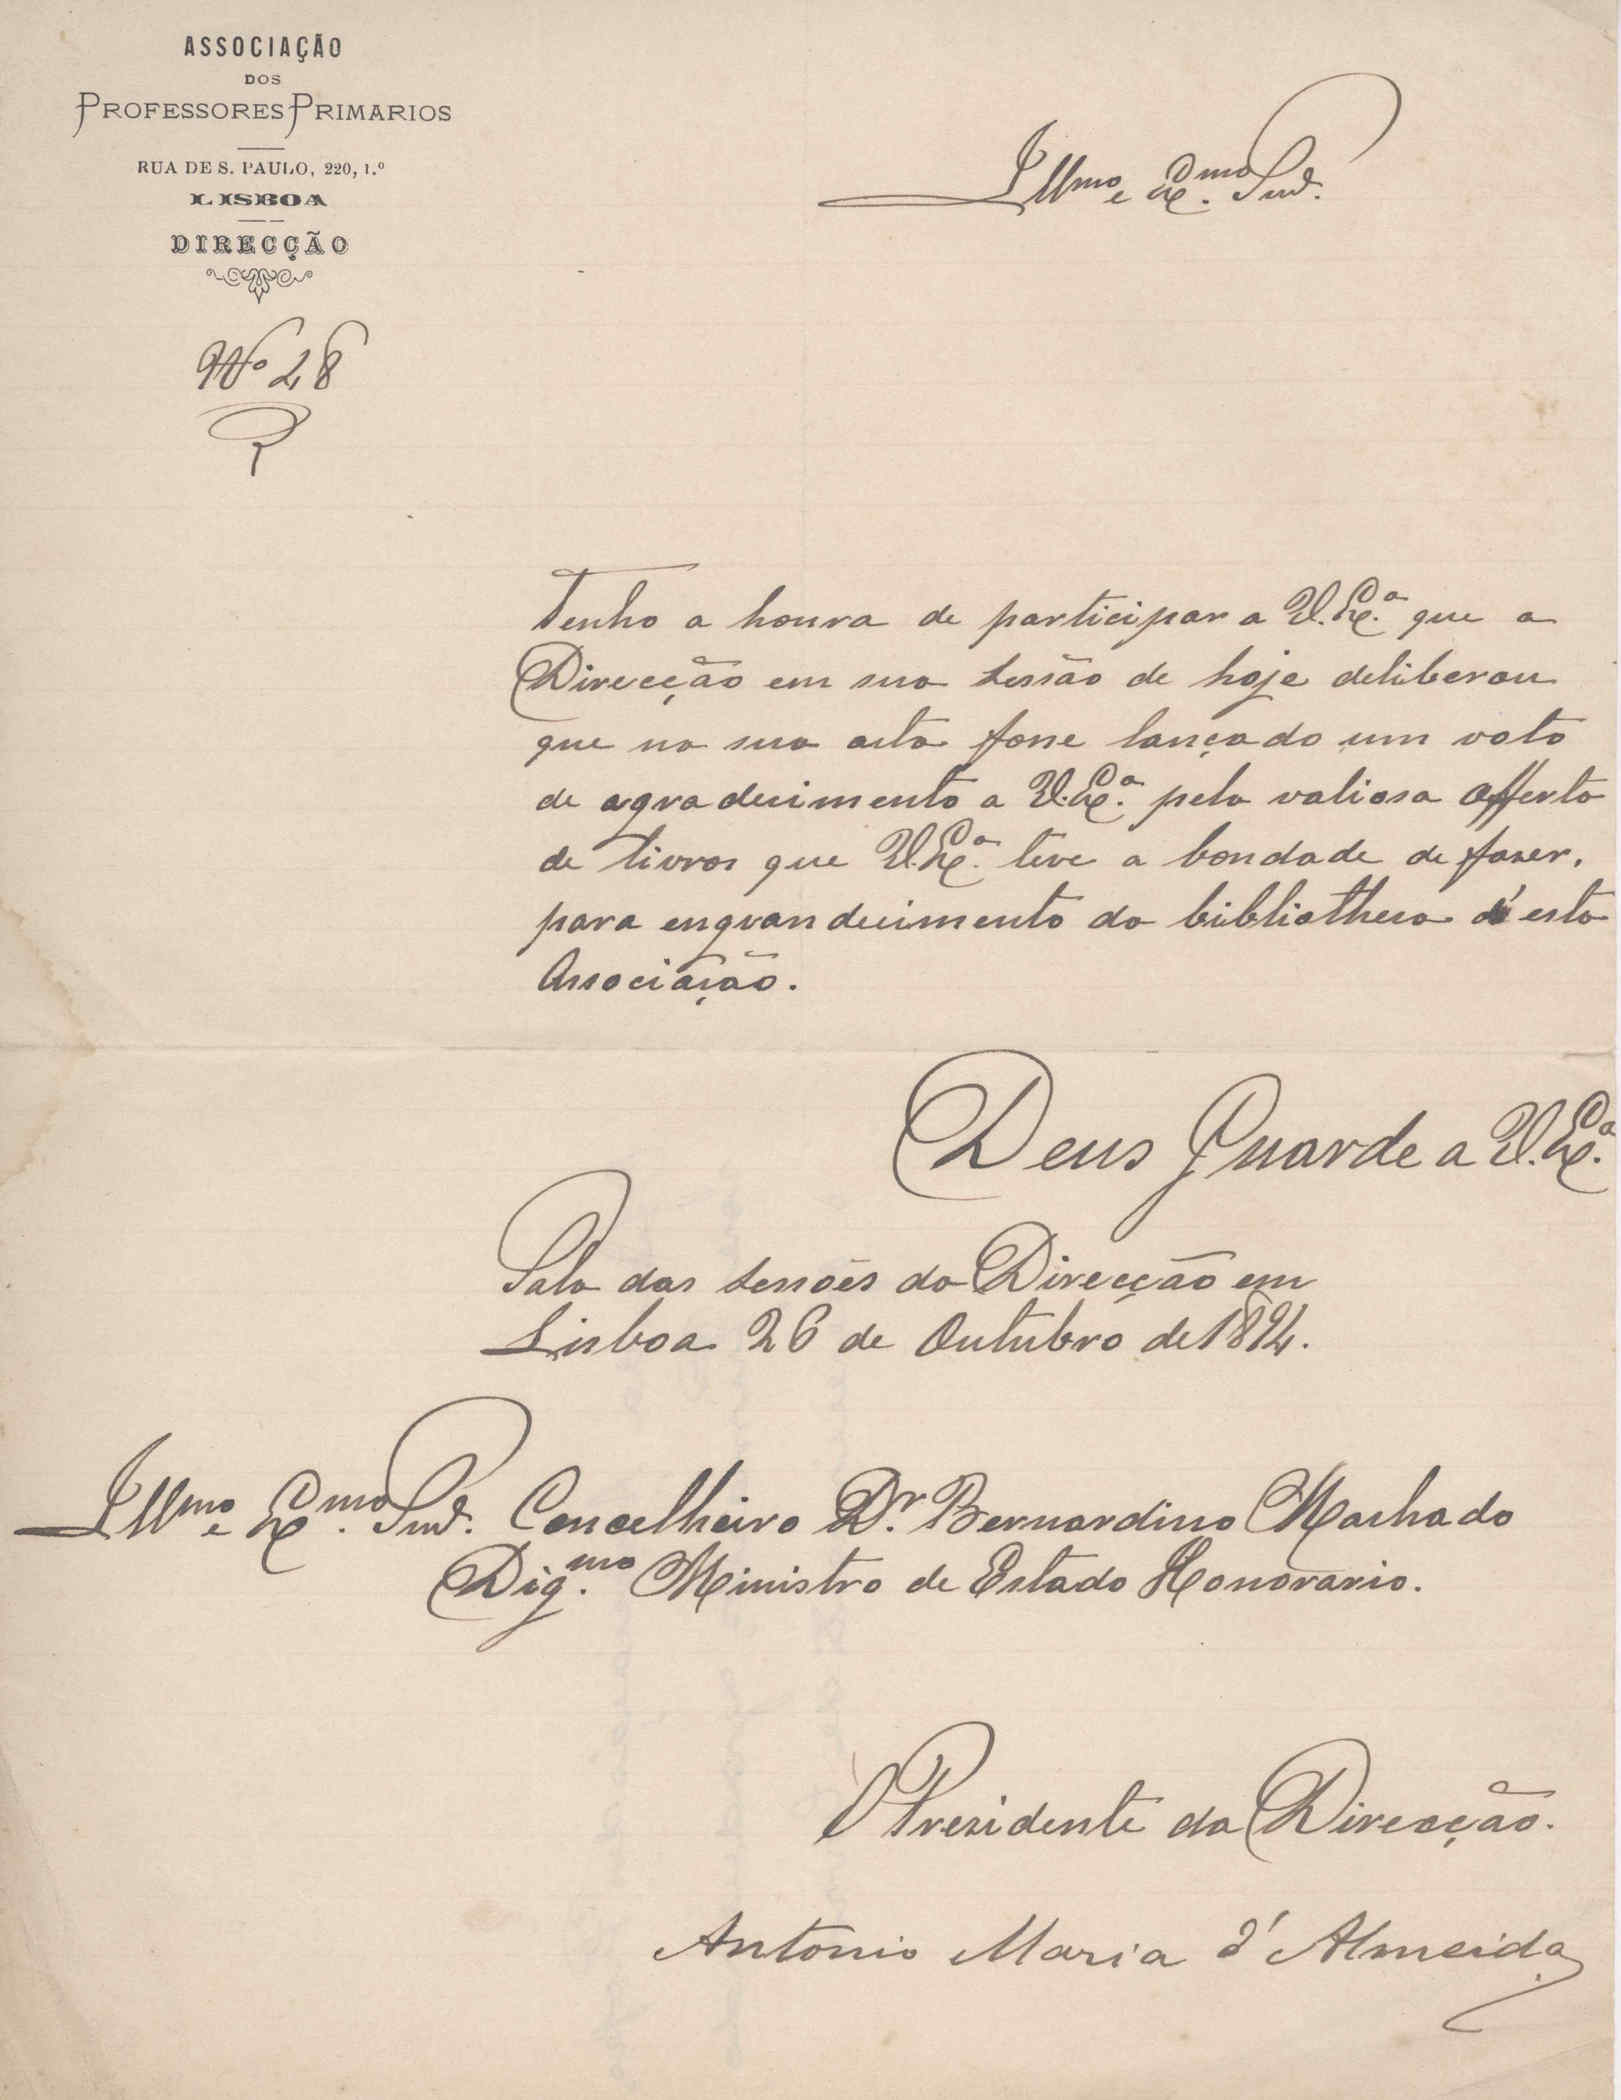 ASSOCIAÇÃO
DOS
PROFESSORES PRIMARIOS
RUA DE S. PAULO, 220, 1.º
LISBOA
DIRECÇÃO
Nº 28
Illmo e Exmo. Snr.
Tenho a honra de participar a V. Exª. que a
Direcção em sua sessão de hoje deliberou
que na sua acta fosse lançado um voto
de agradecimento a V. Exª. pela valiosa offerta
de livros que V. Exª. teve a bondade de fazer,
para engrandecimento da bibliotheca d'esta
Associação.
Deus Guarde a V. Exª.
Sala das sessões da Direcção em
Lisboa 26 de Outubro de 1894.
Illmo e Exmo. Snr. Concelheiro Dr. Bernardino Machado
Dig.mo Ministro de Estado Honorario.
O Presidente da Direcção.
Antonio Maria d'Almeida